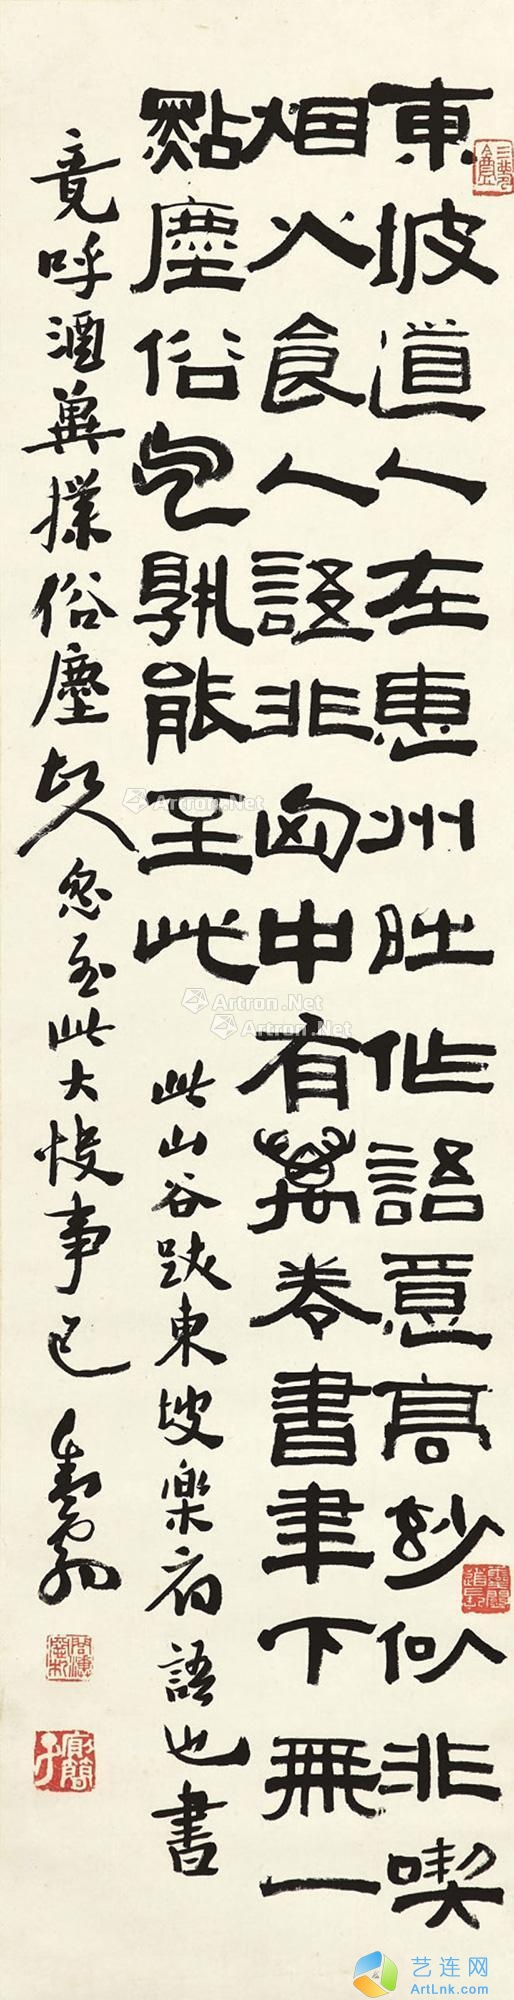 東坡道人在惠州時作語意高妙似非喫
烟火食人語非匈中有萬卷書筆下無一
點塵俗色孰能至此
此山谷跋東坡樂府語也書
竟呼酒冀撲俗塵故人忽至此大快事已
Artron.Net
Artron.Net
Artron.Net
Artron.Net
艺连网
ArtLnk.com